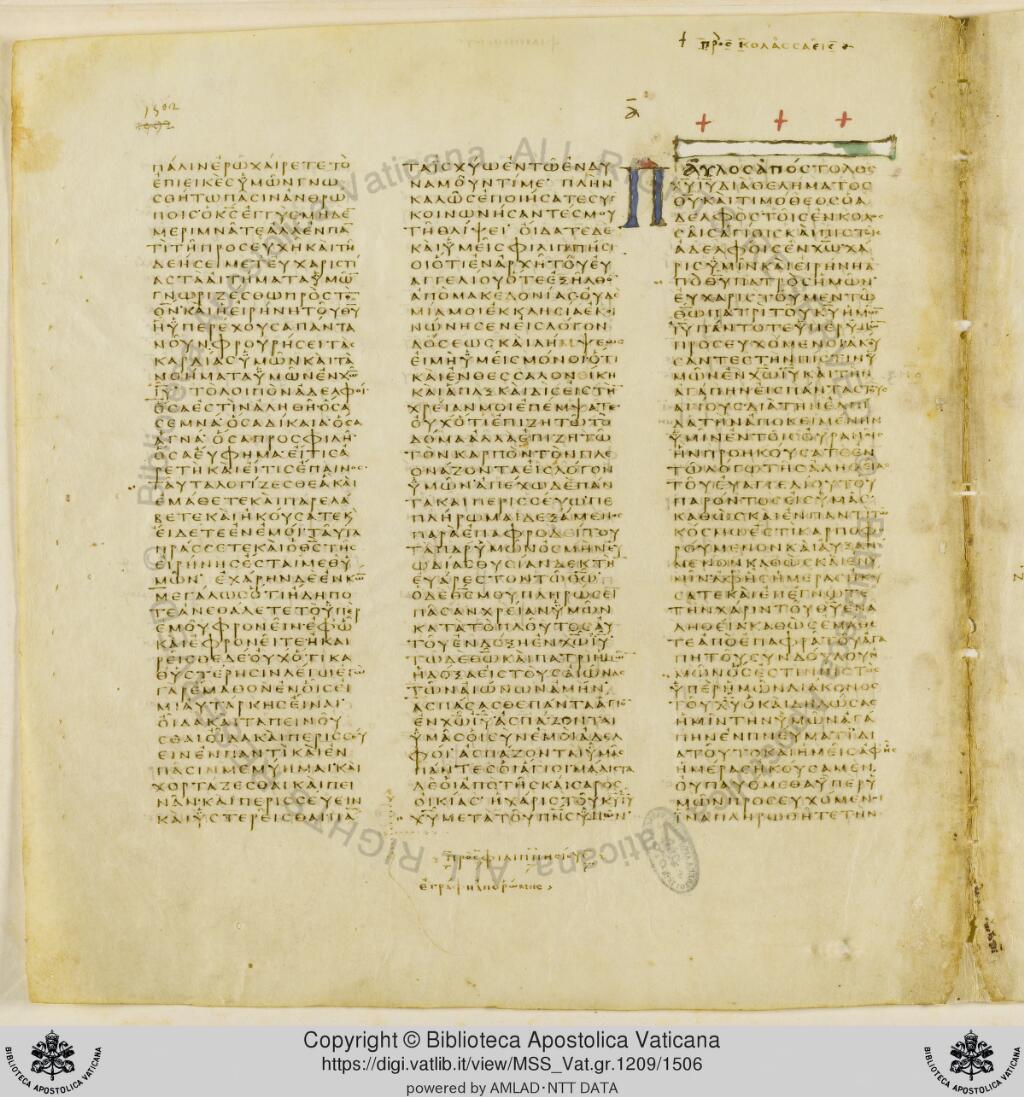 † πρὸς κολασσαεις
1506
ΠΑΛΙΝΕΡΩΧΑΙΡΕΤΕΤΟ
ΕΠΙΕΙΚΕϹΥΜΩΝΓΝΩ
ϹΘΗΤΩΠΑϹΙΝΑΝΘΡΩ
ΠΟΙϹΟΚ̅Ϲ̅ΕΓΓΥϹΜΗΔΕ
ΜΕΡΙΜΝΑΤΕΑΛΛΕΝΠΑ
ΤΙΤΗΠΡΟϹΕΥΧΗΚΑΙΤΗ
ΔΕΗϹΕΙΜΕΤΕΥΧΑΡΙϹΤΙ
ΑϹΤΑΑΙΤΗΜΑΤΑΥΜΩ
ΓΝΩΡΙΖΕϹΘΩΠΡΟϹΤΟ
ΘΝΚΑΙΗΕΙΡΗΝΗΤΟΥΘΥ
ΗΥΠΕΡΕΧΟΥϹΑΠΑΝΤΑ
ΝΟΥΝΦΡΟΥΡΗϹΕΙΤΑϹ
ΚΑΡΔΙΑϹΥΜΩΝΚΑΙΤΑ
ΝΟΗΜΑΤΑΥΜΩΝΕΝΧΩ
ΙΥ ΤΟΛΟΙΠΟΝΑΔΕΛΦΟΙ
ΟϹΑΕϹΤΙΝΑΛΗΘΗΟϹΑ
ϹΕΜΝΑΟϹΑΔΙΚΑΙΑΟϹΑ
ΑΓΝΑΟϹΑΠΡΟϹΦΙΛΗ
ΟϹΑΕΥΦΗΜΑΕΙΤΙϹΑ
ΡΕΤΗΚΑΙΕΙΤΙϹΕΠΑΙΝΟϹ
ΤΑΥΤΑΛΟΓΙΖΕϹΘΕΑΚΑΙ
ΕΜΑΘΕΤΕΚΑΙΠΑΡΕΛΑ
ΒΕΤΕΚΑΙΗΚΟΥϹΑΤΕΚΑΙ
ΕΙΔΕΤΕΕΝΕΜΟΙΤΑΥΤΑ
ΠΡΑϹϹΕΤΕΚΑΙΟΘϹΤΗϹ
ΕΙΡΗΝΗϹΕϹΤΑΙΜΕΘΥ
ΜΩΝ ΕΧΑΡΗΝΔΕΕΝΚΩ
ΜΕΓΑΛΩϹΟΤΙΗΔΗΠΟ
ΤΕΑΝΕΘΑΛΕΤΕΤΟΥΠΕΡ
ΕΜΟΥΦΡΟΝΕΙΝΕΦΩ
ΚΑΙΕΦΡΟΝΕΙΤΕΗΚΑΙ
ΡΕΙϹΘΕΔΕΟΥΧΟΤΙΚΑ
ΘΥϹΤΕΡΗϹΙΝΛΕΓΩΕΓΩ
ΓΑΡΕΜΑΘΟΝΕΝΟΙϹΕΙ
ΜΙΑΥΤΑΡΚΗϹΕΙΝΑΙ
ΟΙΔΑΚΑΙΤΑΠΕΙΝΟΥ
ϹΘΑΙΟΙΔΑΚΑΙΠΕΡΙϹϹΕΥ
ΕΙΝΕΝΠΑΝΤΙΚΑΙΕΝ
ΠΑϹΙΝΜΕΜΥΗΜΑΙΚΑΙ
ΧΟΡΤΑΖΕϹΘΑΙΚΑΙΠΕΙ
ΝΑΝΚΑΙΠΕΡΙϹϹΕΥΕΙΝ
ΚΑΙΥϹΤΕΡΕΙϹΘΑΙΠΑ
ΤΑΙϹΧΥΩΕΝΤΩΕΝΔΥ
ΝΑΜΟΥΝΤΙΜΕ ΠΛΗΝ
ΚΑΛΩϹΕΠΟΙΗϹΑΤΕϹΥΓ
ΚΟΙΝΩΝΗϹΑΝΤΕϹΜΟΥ
ΤΗΘΛΙΨΕΙ ΟΙΔΑΤΕΔΕ
ΚΑΙΥΜΕΙϹΦΙΛΙΠΠΗϹΙ
ΟΙΟΤΙΕΝΑΡΧΗΤΟΥΕΥ
ΑΓΓΕΛΙΟΥΟΤΕΕΞΗΛΘΟ
ΑΠΟΜΑΚΕΔΟΝΙΑϹΟΥΔΕ
ΜΙΑΜΟΙΕΚΚΛΗϹΙΑΕΚΟΙ
ΝΩΝΗϹΕΝΕΙϹΛΟΓΟΝ
ΔΟϹΕΩϹΚΑΙΛΗΜΨΕΩϹ
ΕΙΜΗΥΜΕΙϹΜΟΝΟΙΟΤΙ
ΚΑΙΕΝΘΕϹϹΑΛΟΝΕΙΚΗ
ΚΑΙΑΠΑΞΚΑΙΔΙϹΕΙϹΤΗ
ΧΡΕΙΑΝΜΟΙΕΠΕΜΨΑΤΕ
ΟΥΧΟΤΙΕΠΙΖΗΤΩΤΟ
ΔΟΜΑΑΛΛΑΕΠΙΖΗΤΩ
ΤΟΝΚΑΡΠΟΝΤΟΝΠΛΕ
ΟΝΑΖΟΝΤΑΕΙϹΛΟΓΟΝ
ΥΜΩΝΑΠΕΧΩΔΕΠΑΝ
ΤΑΚΑΙΠΕΡΙϹϹΕΥΩΠΕ
ΠΛΗΡΩΜΑΙΔΕΞΑΜΕΝΟϹ
ΠΑΡΑΕΠΑΦΡΟΔΕΙΤΟΥ
ΤΑΠΑΡΥΜΩΝΟϹΜΗΝΕΥ
ΩΔΙΑϹΘΥϹΙΑΝΔΕΚΤΗ
ΕΥΑΡΕϹΤΟΝΤΩΘΩ
ΟΔΕΘϹΜΟΥΠΛΗΡΩϹΕΙ
ΠΑϹΑΝΧΡΕΙΑΝΥΜΩΝ
ΚΑΤΑΤΟΠΛΟΥΤΟϹΑΥ
ΤΟΥΕΝΔΟΞΗΕΝΧΩΙΥ
ΤΩΔΕΘΩΚΑΙΠΑΤΡΙΗΜΩ
ΗΔΟΞΑΕΙϹΤΟΥϹΑΙΩΝΑϹ
ΤΩΝΑΙΩΝΩΝΑΜΗΝ
ΑϹΠΑϹΑϹΘΕΠΑΝΤΑΑΓΙΟ
ΕΝΧΩΙΥΑϹΠΑΖΟΝΤΑΙ
ΥΜΑϹΟΙϹΥΝΕΜΟΙΑΔΕΛ
ΦΟΙΑϹΠΑΖΟΝΤΑΙΥΜΑϹ
ΠΑΝΤΕϹΟΙΑΓΙΟΙΜΑΛΙϹΤΑ
ΔΕΟΙΑΠΟΤΗϹΚΑΙϹΑΡΟϹ
ΟΙΚΙΑϹ ΗΧΑΡΙϹΤΟΥΚΥΙΥ
ΧΥΜΕΤΑΤΟΥΠΝϹΥΜΩΝ
ΠΡΟϹΦΙΛΙΠΠΗϹΙΟΥϹ
ΕΓΡΑΦΗΑΠΟΡΩΜΗϹ
Α
ΠΑΥΛΟϹΑΠΟϹΤΟΛΟϹ
ΧΥΙΥΔΙΑΘΕΛΗΜΑΤΟϹ
ΘΥΚΑΙΤΙΜΟΘΕΟϹΟΑ
ΔΕΛΦΟϹΤΟΙϹΕΝΚΟΛΟϹ
ϹΑΙϹΑΓΙΟΙϹΚΑΙΠΙϹΤΟΙϹ
ΑΔΕΛΦΟΙϹΕΝΧΩΧΑ
ΡΙϹΥΜΙΝΚΑΙΕΙΡΗΝΗΑ
ΠΟΘΥΠΑΤΡΟϹΗΜΩΝ
ΕΥΧΑΡΙϹΤΟΥΜΕΝΤΩ
ΘΩΠΑΤΡΙΤΟΥΚΥΗΜΩ
ΙΥΠΑΝΤΟΤΕΥΠΕΡΥΜΩ
ΠΡΟϹΕΥΧΟΜΕΝΟΙΑΚΟΥ
ϹΑΝΤΕϹΤΗΝΠΙϹΤΙΝΥ
ΜΩΝΕΝΧΩΙΥΚΑΙΤΗΝ
ΑΓΑΠΗΝΕΙϹΠΑΝΤΑϹΤΟΥϹ
ΑΓΙΟΥϹΔΙΑΤΗΝΕΛΠΙ
ΔΑΤΗΝΑΠΟΚΕΙΜΕΝΗΝ
ΥΜΙΝΕΝΤΟΙϹΟΥΡΑΝΟΙϹ
ΗΝΠΡΟΗΚΟΥϹΑΤΕΕΝ
ΤΩΛΟΓΩΤΗϹΑΛΗΘΕΙΑϹ
ΤΟΥΕΥΑΓΓΕΛΙΟΥΤΟΥ
ΠΑΡΟΝΤΟϹΕΙϹΥΜΑϹ
ΚΑΘΩϹΚΑΙΕΝΠΑΝΤΙΤΩ
ΚΟϹΜΩΕϹΤΙΚΑΡΠΟΦΟ
ΡΟΥΜΕΝΟΝΚΑΙΑΥΞΑΝΟ
ΜΕΝΟΝΚΑΘΩϹΚΑΙΕΝΥ
ΜΙΝΑΦΗϹΗΜΕΡΑϹΗΚΟΥ
ϹΑΤΕΚΑΙΕΠΕΓΝΩΤΕ
ΤΗΝΧΑΡΙΝΤΟΥΘΥΕΝΑ
ΛΗΘΕΙΑΚΑΘΩϹΕΜΑΘΕ
ΤΕΑΠΟΕΠΑΦΡΑΤΟΥΑΓΑ
ΠΗΤΟΥϹΥΝΔΟΥΛΟΥΗ
ΜΩΝΟϹΕϹΤΙΝΠΙϹΤΟϹ
ΥΠΕΡΗΜΩΝΔΙΑΚΟΝΟϹ
ΤΟΥΧΥΟΚΑΙΔΗΛΩϹΑϹ
ΗΜΙΝΤΗΝΥΜΩΝΑΓΑ
ΠΗΝΕΝΠΝΕΥΜΑΤΙΔΙ
ΑΤΟΥΤΟΚΑΙΗΜΕΙϹΑΦΗϹ
ΗΜΕΡΑϹΗΚΟΥϹΑΜΕΝ
ΟΥΠΑΥΟΜΕΘΑΥΠΕΡΥ
ΜΩΝΠΡΟϹΕΥΧΟΜΕΝΟΙ
ΙΝΑΠΛΗΡΩΘΗΤΕΤΗΝ
Copyright © Biblioteca Apostolica Vaticana
https://digi.vatlib.it/view/MSS_Vat.gr.1209/1506
powered by AMLAD·NTT DATA
BIBLIOTECA APOSTOLICA VATICANA
BIBLIOTECA APOSTOLICA VATICANA